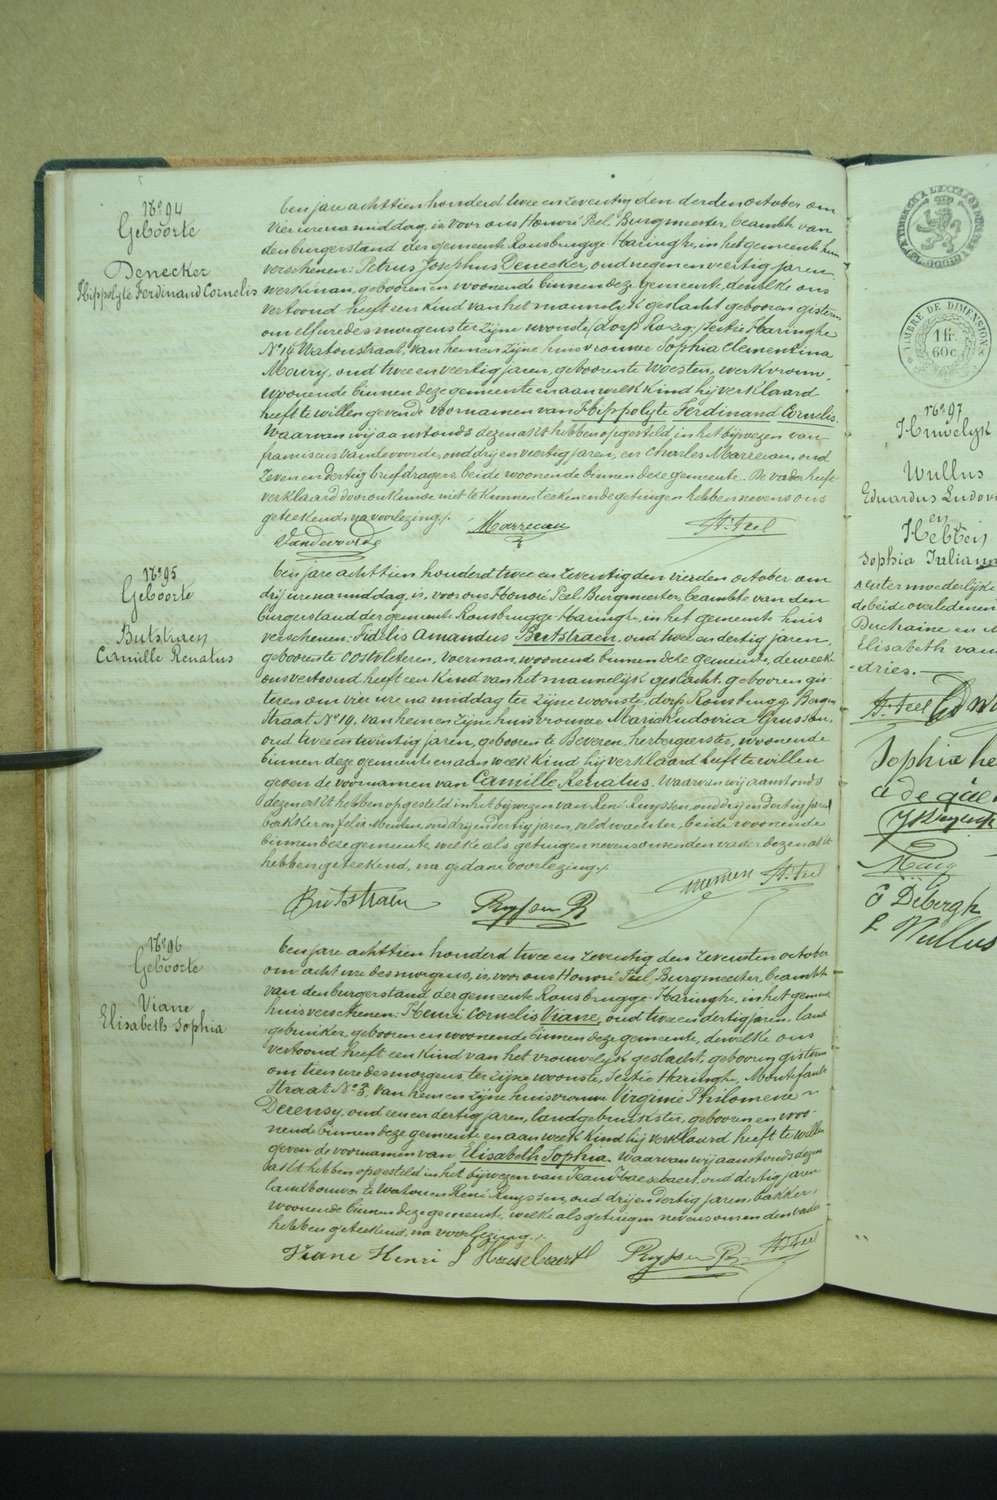 N° 94
Geboorte
Denecker
Hippolyte Ferdinand Cornelis
Ten jare achttien honderd twee en zeventig den derden october om
vier ure na middag, is voor ons Honoré Peel Burgmeester, beambte van
den burgerstand der gemeente Rousbrugge Haringhe, in het gemeente huis
verschenen: Petrus Josephus Denecker, oud negen en veertig jaren
werkman, geboren en woonende binnen deze Gemeente, dewelke ons
vertoond heeft een kind van het mannelijk geslacht geboren gisteren
om elf ure des morgens ter zijne woonste, sectie Haringhe
Watoustraat, van hem en zijne huisvrouwe Sophia Clementina
Maury, oud twee en veertig jaren, geboren te Woesten, werkvrouw,
woonende binnen deze gemeente en aan welk kind hij verklaard
heeft te willen geven de voornamen van Hippolyte Ferdinand Cornelis.
Waarvan wij aanstonds dezen akt hebben opgesteld, in het bijwezen van
franciscus Vandevoorde, oud drij en veertig jaren, en Charles Marrecau, oud
zeven en dertig briefdragers, beide woonende binnen deze gemeente. De vader heeft
verklaard door onkunde niet te kunnen teekenen de getuigen hebben nevens ons
geteekend, na voorlezing./.
Marrecau
H. Peel
Vandevoorde
N° 95
Geboorte
Butstraen
Camille Renatus
Ten jare achttien honderd twee en zeventig den vierden october om
drij ure na middag, is, voor ons Honoré Peel Burgmeester, beambte van den
burgerstand der gemeente Rousbrugge Haringhe, in het gemeente huis
verschenen: Fidelis Amandus Butstraen, oud twee en dertig jaren,
geboren te Oostvleteren, voerman, woonende binnen deze gemeente, dewelke
ons vertoond heeft een kind van het mannelijk geslacht, geboren gis-
teren om vier ure na middag ter zijne wooste, dorp Rousbrugge Bergen
Straat N° 19, van hem en zijne huisvrouwe Maria Ludovica Grusson,
oud twee en twintig jaren, geboren te Beveren, herbergierster, woonende
binnen deze gemeente en aan welk kind hij verklaard heeft te willen
geven de voornamen van Camille Renatus. Waarvan wij aanstonds
dezen akt hebben opgesteld in het bijwezen van René Ruyssen, oud drij en dertig jaren
bakker en felix Meulen, oud drij en dertig jaren, veldwachter, beide woonende
binnen deze gemeente, welke als getuigen nevens ons en den vader dezen akt
hebben geteekend, na gedane voorlezing./.
Butstraen
Ruyssen R
H. Peel
N° 96
Geboorte
Viane
Elisabeth Sophia
Ten jare achttien honderd twee en zeventig den zevensten october
om acht ure des morgens, is, voor ons Honoré Peel, Burgmeester, beambte
van den burgerstand der gemeente Rousbrugge Haringhe, in het gemeente
huis verschenen: Henri Cornelis Viane, oud twee en dertig jaren, land
gebruiker, geboren en woonende binnen deze gemeente, dewelke ons
vertoond heeft een kind van het vrouwelijk geslacht, geboren gisteren
om tien ure des morgens, ter zijne wooste, Sectie Haringhe,
Straat N° 3, van hem en zijne huisvrouwe Virginie Philomene
Derensy, oud een en dertig jaren, landgebruikster, geboren en woo-
nende binnen deze gemeente en aan welk kind hij verklaard heeft te willen
geven de voornamen van Elisabeth Sophia. Waarvan wij aanstonds dezen
akt hebben opgesteld in het bijwezen van Jean Haesebaert, oud dertig jaren
landbouwer te Watou en René Ruyssen, oud drij en dertig jaren, bakker,
woonende binnen deze gemeente, welke als getuigen nevens ons en den vader
hebben geteekend, na voorlezing./.
Viane Henri
Haesebaert
Ruyssen R
H. Peel
TIMBRE DE DIMENSION
1 fr.
60 c
N° 97
Huwelijk
Wullus
Eduardus Ludovi
en
Sophia Julia
de beide overledenen
Duchaine en
Elisabeth van
dries.
H. Peel
Sophia he
Maes
Debergh
Wullus